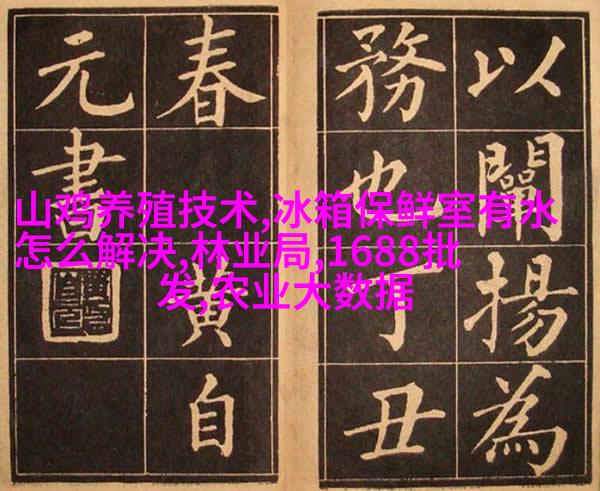 以闡揚為
務也丁丑
春黄自
元書
山鸡养殖技术,冰箱保鲜室有水
怎么解决,林业局,1688批
发,农业大数据